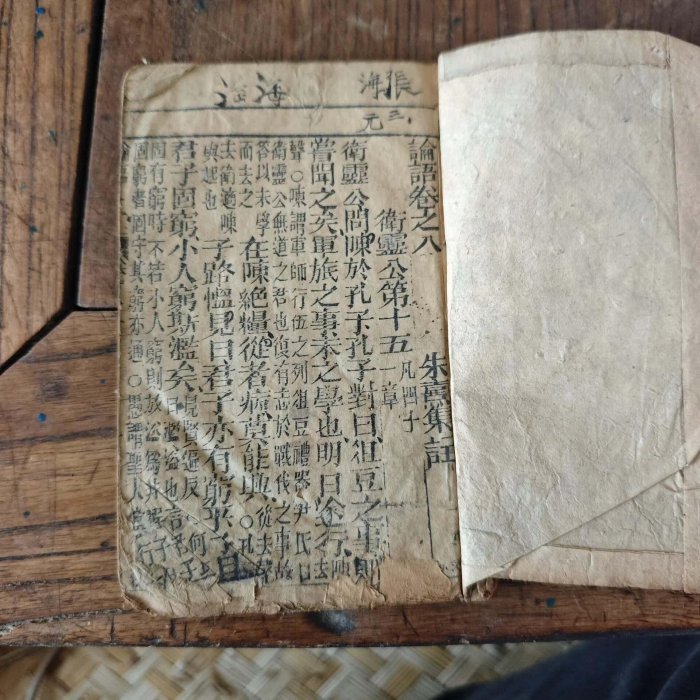 張海
三元
海
論語卷之八
朱熹集註
衛靈公第十五
凡四十一章
衛靈公問陳於孔子孔子對曰俎豆之事則
嘗聞之矣軍旅之事未之學也明日遂行陳去
聲○陳謂車師行伍之列俎豆禮器尹氏曰
衛靈公無道之君也復有志於戰伐之事故
答以未學
而去之
在陳絕糧從者病莫能興從去聲○孔
子去衛適陳
興起也
子路慍見曰君子亦有窮乎子曰
君子固窮小人窮斯濫矣見賢遍反○何氏
曰濫溢也言君子
固有窮時不若小人窮則放溢為非程子
固窮者固守其窮亦通○愚謂聖人當行